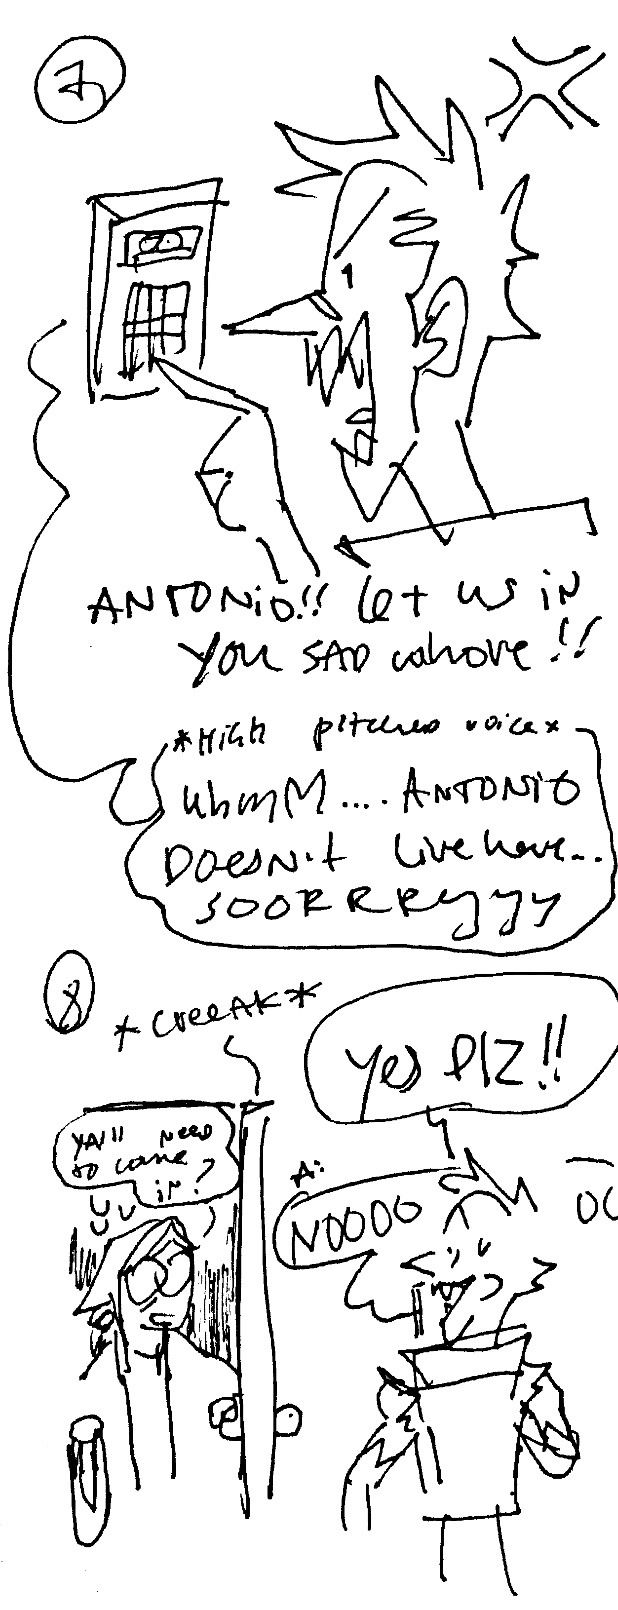 7
ANTONIO!! let us in
you SAD whore!!
*HigH pitched voice*
uhmmM.... ANTONIO
DoesN't live here...
SOORRRRyyyy
8
*CreeAK*
yes PlZ!!
YA'll NEED
to come
in?
A:
NOOOO